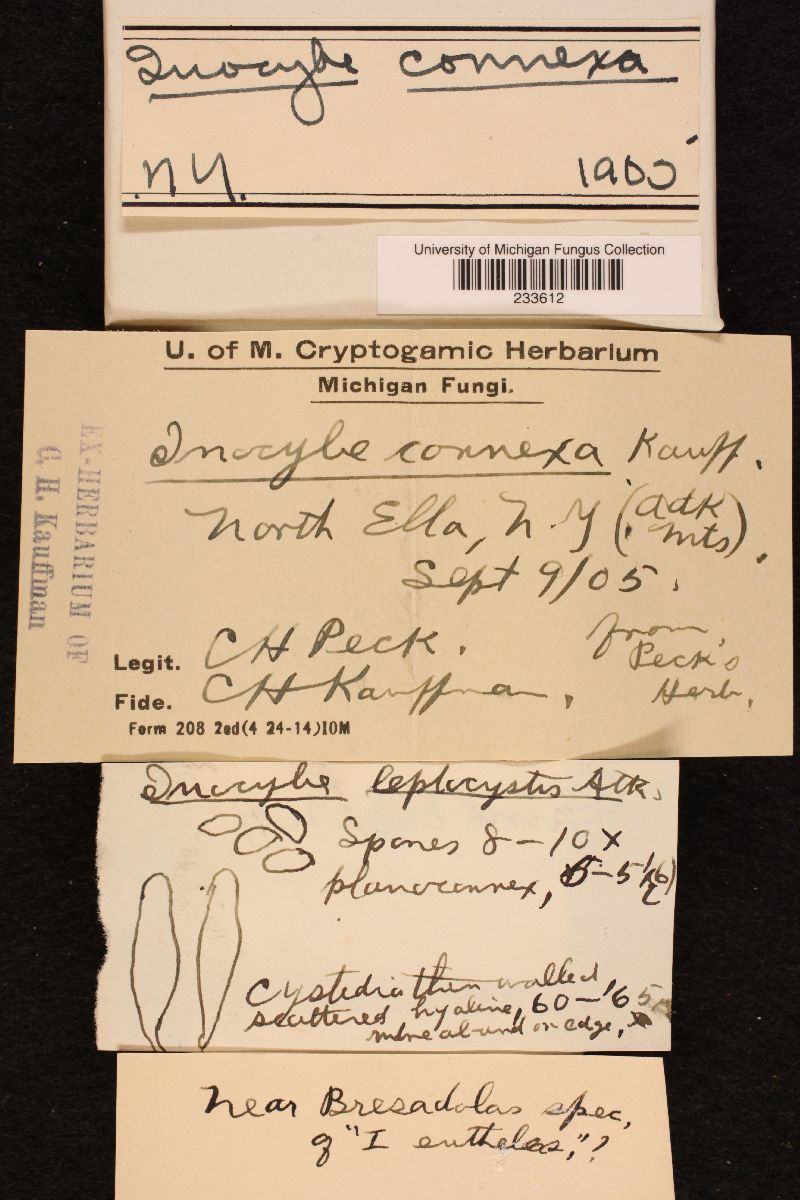 Inocybe connexa
N.Y. 1905
University of Michigan Fungus Collection
233612
U. of M. Cryptogamic Herbarium
Michigan Fungi.
Inocybe connexa Kauff.
North Elba, N.Y. (Adk
Mts).
Sept 9/05.
Legit. CH Peck.
Fide. CH Kauffman,
from
Peck's
Herb.
Form 208 2ed(4 24-14)10M
EX-HERBARIUM OF
C. H. Kauffman
Inocybe leptocystis Atk.
Spores 8-10 x
planoconvex,
Cystidia thin walled
scattered hyaline, 60-65
more abund on edge,
Near Bresadolas spec.
of "I eutheles,"?